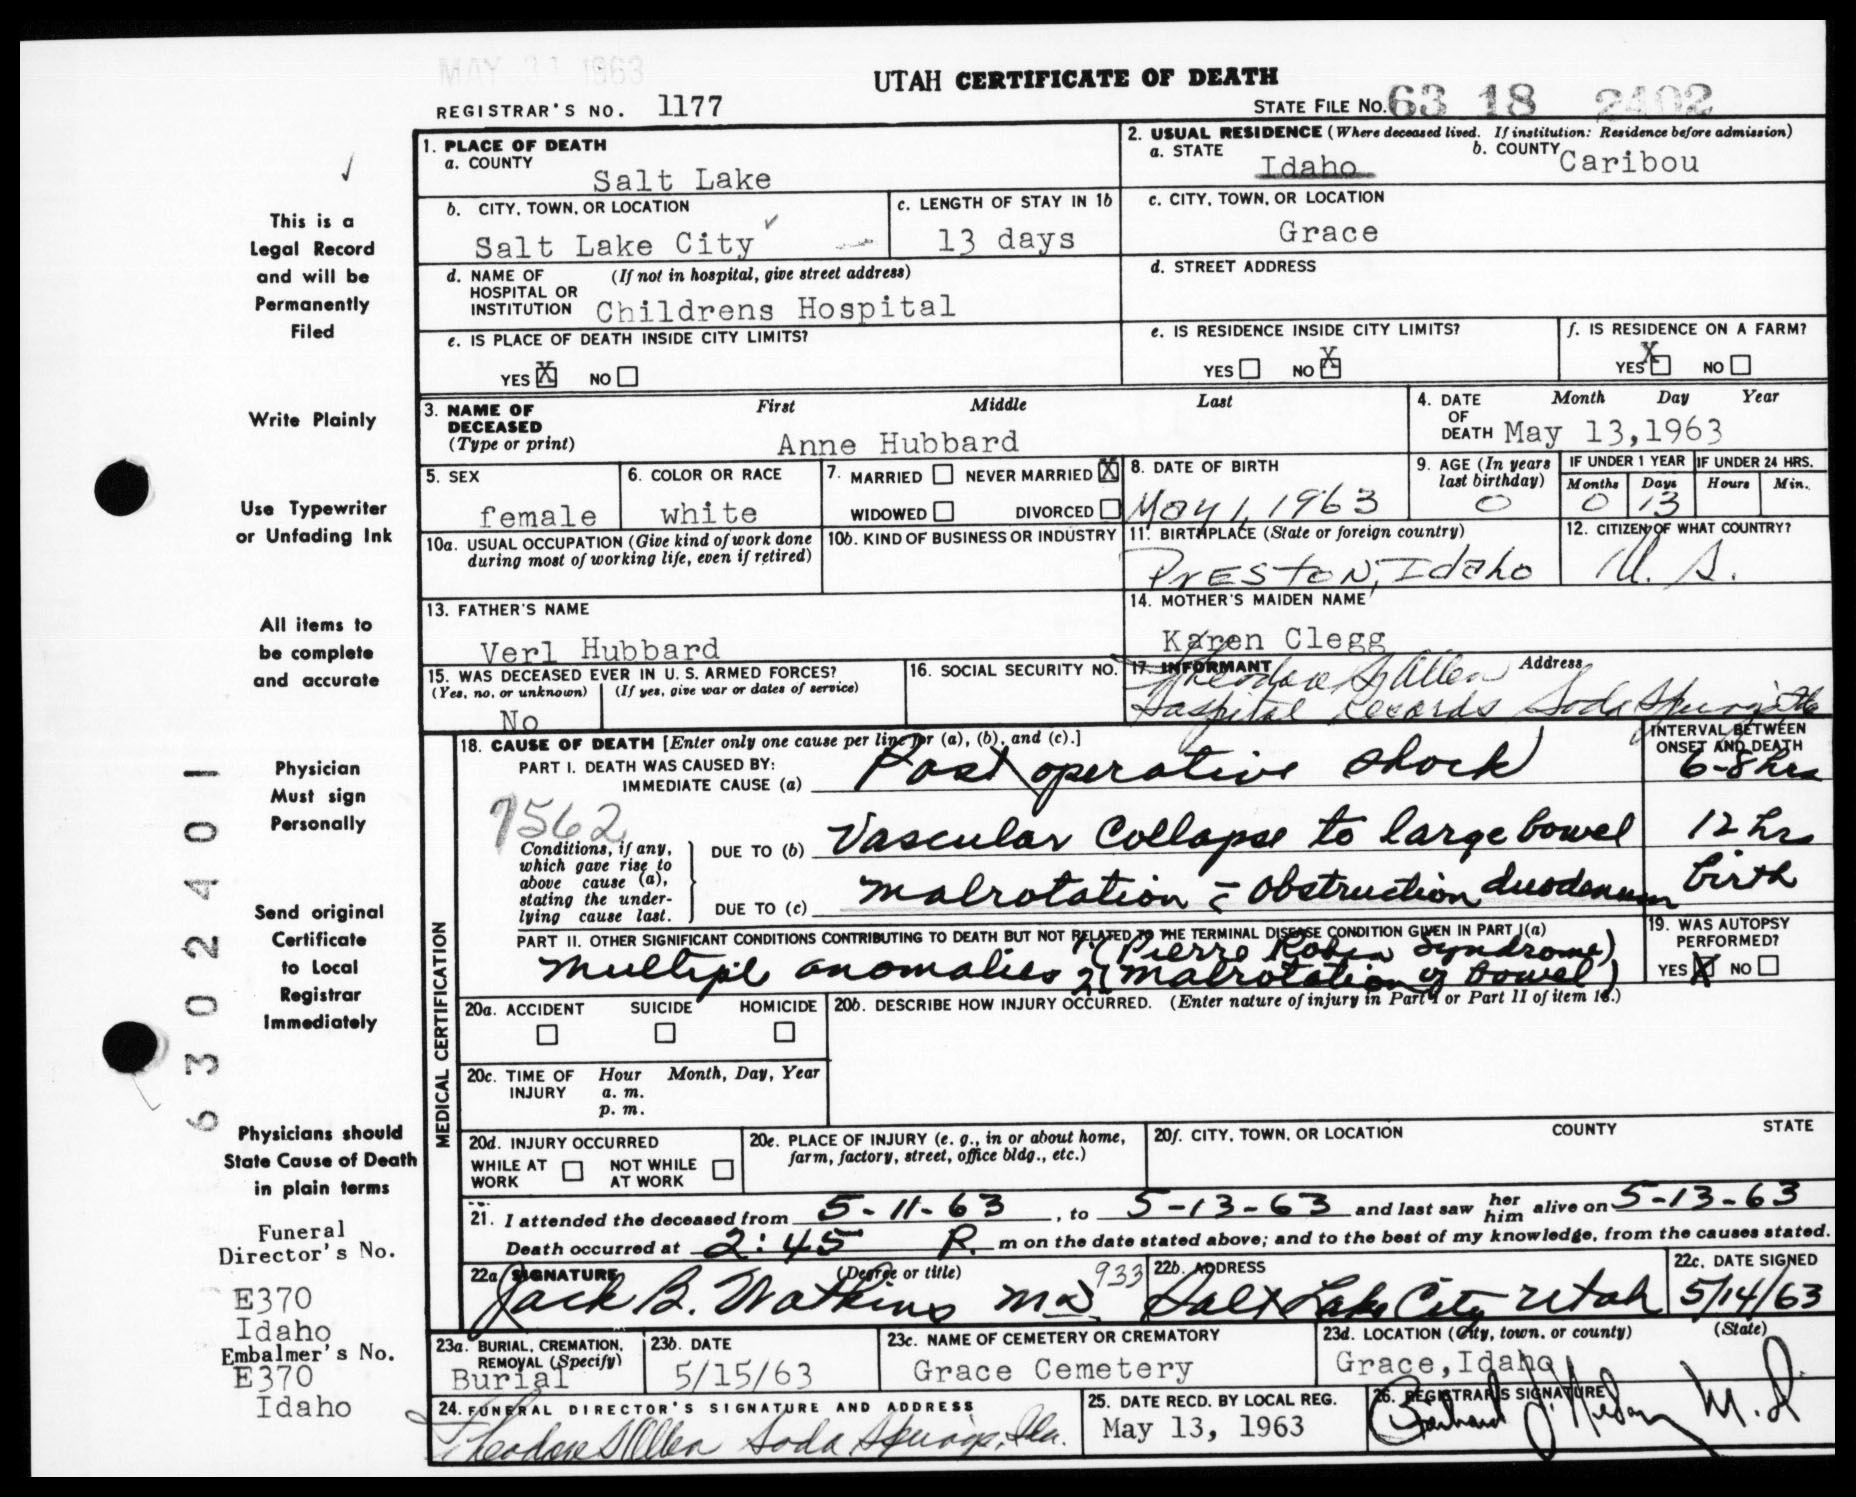 MAY 31 1963
UTAH CERTIFICATE OF DEATH
REGISTRAR'S NO. 1177
STATE FILE NO. 63 18 2402
1. PLACE OF DEATH
a. COUNTY
Salt Lake
2. USUAL RESIDENCE (Where deceased lived. If institution: Residence before admission)
a. STATE Idaho
b. COUNTY Caribou
b. CITY, TOWN, OR LOCATION
Salt Lake City
c. LENGTH OF STAY IN 1b
13 days
c. CITY, TOWN, OR LOCATION
Grace
d. NAME OF HOSPITAL OR INSTITUTION (If not in hospital, give street address)
Childrens Hospital
d. STREET ADDRESS
e. IS PLACE OF DEATH INSIDE CITY LIMITS?
YES X NO
e. IS RESIDENCE INSIDE CITY LIMITS?
YES NO X
f. IS RESIDENCE ON A FARM?
YES X NO
3. NAME OF DECEASED (Type or print)
First Middle Last
Anne Hubbard
4. DATE OF DEATH Month Day Year
May 13,1963
5. SEX
female
6. COLOR OR RACE
white
7. MARRIED NEVER MARRIED X
WIDOWED DIVORCED
8. DATE OF BIRTH
May 1, 1963
9. AGE (In years last birthday)
0
IF UNDER 1 YEAR
Months Days
0 13
IF UNDER 24 HRS.
Hours Min.
10a. USUAL OCCUPATION (Give kind of work done during most of working life, even if retired)
10b. KIND OF BUSINESS OR INDUSTRY
11. BIRTHPLACE (State or foreign country)
PRESTON, Idaho
12. CITIZEN OF WHAT COUNTRY?
U. S.
13. FATHER'S NAME
Verl Hubbard
14. MOTHER'S MAIDEN NAME
Karen Clegg
15. WAS DECEASED EVER IN U. S. ARMED FORCES?
(Yes, no, or unknown) (If yes, give war or dates of service)
No
16. SOCIAL SECURITY NO.
17. INFORMANT Address
Theodore S Allen
Hospital Records Soda Springs
18. CAUSE OF DEATH [Enter only one cause per line for (a), (b), and (c).]
INTERVAL BETWEEN ONSET AND DEATH
PART I. DEATH WAS CAUSED BY:
IMMEDIATE CAUSE (a) Post operative shock 6-8 hrs
7562
Conditions, if any, which gave rise to above cause (a), stating the underlying cause last.
DUE TO (b) Vascular Collapse to large bowel 12 hrs
DUE TO (c) Malrotation c̄ obstruction duodenum birth
PART II. OTHER SIGNIFICANT CONDITIONS CONTRIBUTING TO DEATH BUT NOT RELATED TO THE TERMINAL DISEASE CONDITION GIVEN IN PART I(a)
Multiple anomalies 1. (Pierre Robin Syndrome)
2 (Malrotation of bowel)
19. WAS AUTOPSY PERFORMED?
YES X NO
20a. ACCIDENT SUICIDE HOMICIDE
20b. DESCRIBE HOW INJURY OCCURRED. (Enter nature of injury in Part I or Part II of item 18.)
20c. TIME OF INJURY Hour Month, Day, Year
a. m.
p. m.
20d. INJURY OCCURRED
WHILE AT WORK NOT WHILE AT WORK
20e. PLACE OF INJURY (e. g., in or about home, farm, factory, street, office bldg., etc.)
20f. CITY, TOWN, OR LOCATION COUNTY STATE
MEDICAL CERTIFICATION
21. I attended the deceased from 5-11-63, to 5-13-63 and last saw her him alive on 5-13-63
Death occurred at 2:45 P. m on the date stated above; and to the best of my knowledge, from the causes stated.
22a. SIGNATURE (Degree or title)
Jack B. Watkins MD 933
22b. ADDRESS
Salt Lake City Utah
22c. DATE SIGNED
5/14/63
23a. BURIAL, CREMATION, REMOVAL (Specify)
Burial
23b. DATE
5/15/63
23c. NAME OF CEMETERY OR CREMATORY
Grace Cemetery
23d. LOCATION (City, town, or county) (State)
Grace, Idaho
24. FUNERAL DIRECTOR'S SIGNATURE AND ADDRESS
Theodore S Allen Soda Springs, Ida.
25. DATE RECD. BY LOCAL REG.
May 13, 1963
26. REGISTRAR'S SIGNATURE
M.D.
This is a
Legal Record
and will be
Permanently
Filed
Write Plainly
Use Typewriter
or Unfading Ink
All items to
be complete
and accurate
Physician
Must sign
Personally
Send original
Certificate
to Local
Registrar
Immediately
Physicians should
State Cause of Death
in plain terms
Funeral
Director's No.
E370
Idaho
Embalmer's No.
E370
Idaho
6302401